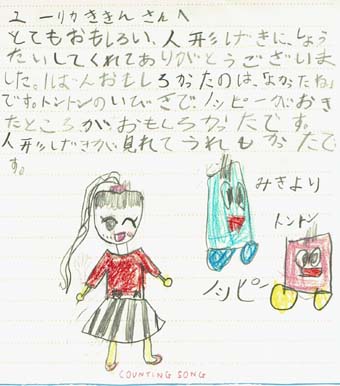 ユーリカききん さんへ
とてもおもしろい、人形げきに、しょう
たいしてくれてありがとうございま
した。1ばんおもしろかったのは、「なかったね」
です。トントンのいびきでノッピーがおき
たところが、おもしろかったです。
人形げきが見れてうれもかったで
す。
みきより
トントン
ノッピー
COUNTING SONG